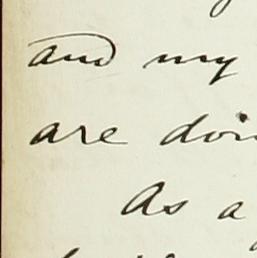 and my
are doin
As a